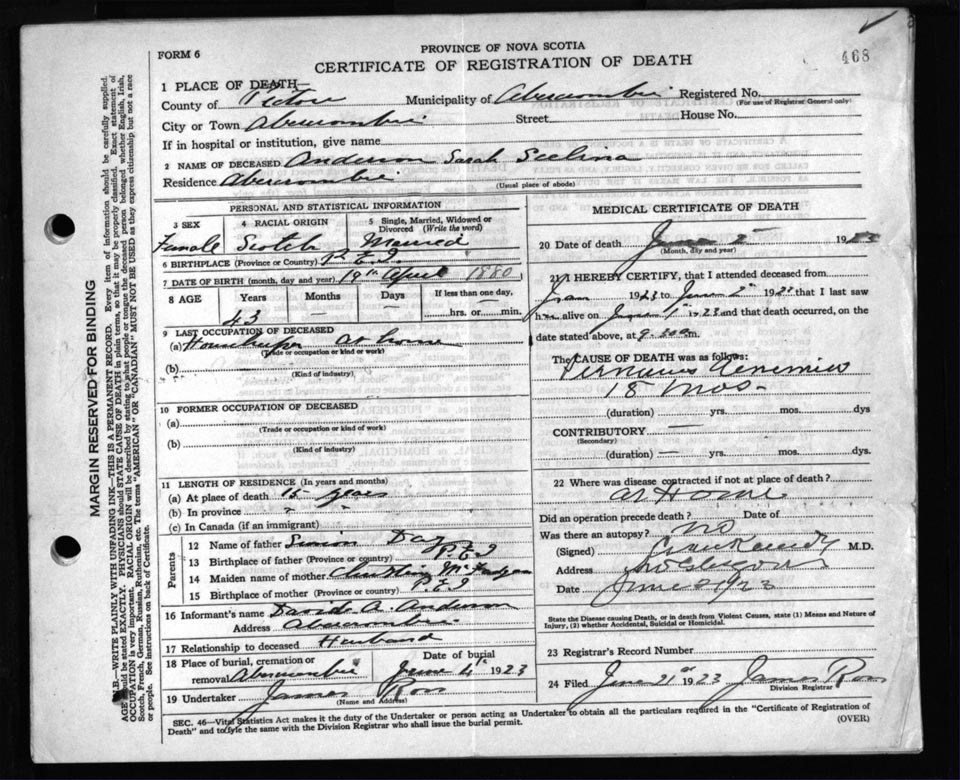 468
FORM 6
PROVINCE OF NOVA SCOTIA
CERTIFICATE OF REGISTRATION OF DEATH
MARGIN RESERVED FOR BINDING
N.B.—WRITE PLAINLY WITH UNFADING INK—THIS IS A PERMANENT RECORD. Every item of information should be carefully supplied.
AGE should be stated EXACTLY. PHYSICIANS should STATE CAUSE OF DEATH in plain terms, so that it may be properly classified. Exact statement of
OCCUPATION is very important. RACIAL ORIGIN will be described by stating to what people or tongue the deceased person belonged whether English, Irish,
Scotch, French, German, Russian, Ruthenian, etc. The terms "AMERICAN" OR "CANADIAN" MUST NOT BE USED as they express citizenship but not a race
or people. See instructions on back of Certificate.
1 PLACE OF DEATH—
County of Pictou Municipality of Abercrombie Registered No.
(For use of Registrar General only)
City or Town Abercrombie Street House No.
If in hospital or institution, give name
2 NAME OF DECEASED Anderson Sarah Seelina
Residence Abercrombie
(Usual place of abode)
PERSONAL AND STATISTICAL INFORMATION
3 SEX 4 RACIAL ORIGIN 5 Single, Married, Widowed or Divorced (Write the word)
Female Scotch Married
6 BIRTHPLACE (Province or Country) P.E.I.
7 DATE OF BIRTH (month, day and year) 19th April 1880
8 AGE Years Months Days If less than one day,
43 — — hrs. or min.
9 LAST OCCUPATION OF DECEASED
(a) Housekeeper at home
(Trade or occupation or kind or work)
(b)
(Kind of industry)
10 FORMER OCCUPATION OF DECEASED
(a)
(Trade or occupation or kind of work)
(b)
(Kind of industry)
11 LENGTH OF RESIDENCE (In years and months)
(a) At place of death 15 years
(b) In province " "
(c) In Canada (if an immigrant)
Parents
12 Name of father Simion Day
13 Birthplace of father (Province or country) P.E.I
14 Maiden name of mother
15 Birthplace of mother (Province or country) P.E.I
16 Informant's name David A. Anderson
Address Abercrombie
17 Relationship to deceased Husband
18 Place of burial, cremation or removal Abercrombie Date of burial June 4th 1923
19 Undertaker James Ross
(Name and Address)
MEDICAL CERTIFICATE OF DEATH
20 Date of death June 2 1923
(Month, day and year)
21 I HEREBY CERTIFY, that I attended deceased from
Jan 1923 to June 2 1923 that I last saw
her alive on June 1 1923 and that death occurred, on the
date stated above, at m.
The CAUSE OF DEATH was as follows:
Pernicious Anemia
18 mos—
(duration) yrs. mos. dys
CONTRIBUTORY —
(Secondary)
(duration) — yrs. mos. dys.
22 Where was disease contracted if not at place of death?
at Home
Did an operation precede death? Date of
Was there an autopsy? no
(Signed) Kennedy M.D.
Address New Glasgow
Date June 2 1923
State the Disease causing Death, or in death from Violent Causes, state (1) Means and Nature of
Injury, (2) whether Accidental, Suicidal or Homicidal.
23 Registrar's Record Number
24 Filed June 21 1923 James Ross
Division Registrar
SEC. 46—Vital Statistics Act makes it the duty of the Undertaker or person acting as Undertaker to obtain all the particulars required in the "Certificate of Registration of
Death" and to file the same with the Division Registrar who shall issue the burial permit. (OVER)